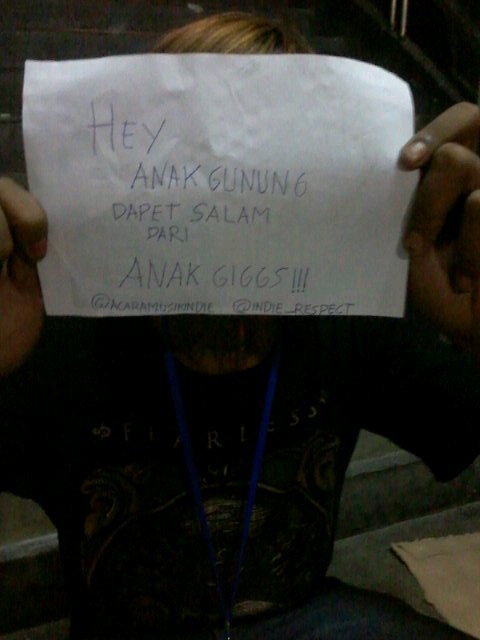 HEY
ANAK GUNUNG
DAPET SALAM
DARI
ANAK GIGGS!!!
@ACARAMUSIKINDIE @INDIE_RESPECT
FEARLESS